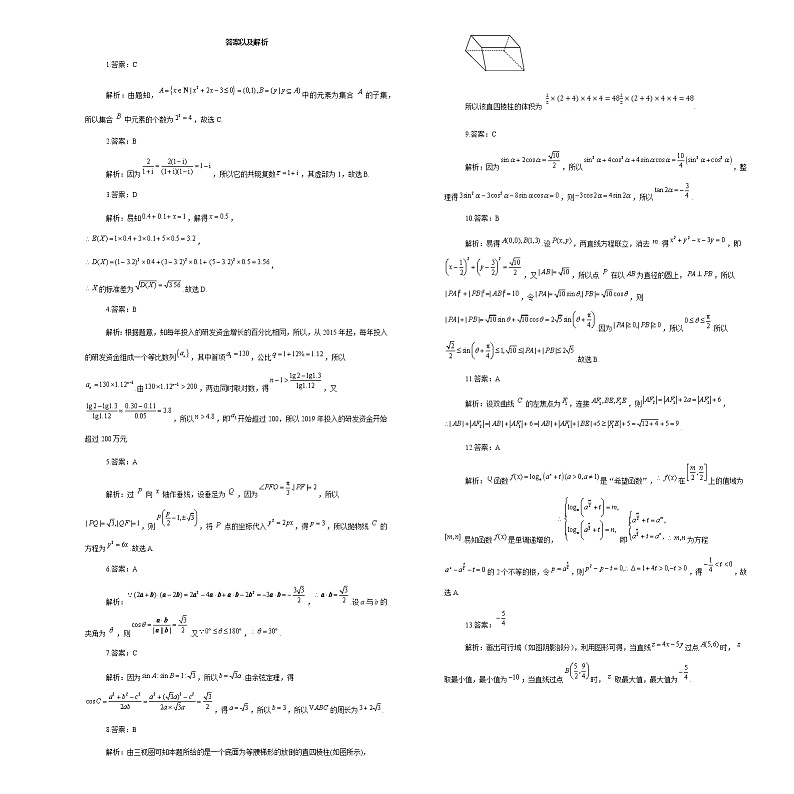 答案以及解析
1.答案：C
解析：由题知，A={x∈N|x²+2x-3≤0}=(0,1),B={y|y⊆A}中的元素为集合 A 的子集，
所以集合 B 中元素的个数为2²=4，故选 C.
2.答案：B
解析：因为2/(1+i)=2(1-i)/((1+i)(1-i))=1-i，所以它的共轭复数z=1+i，其虚部为 1，故选B.
3.答案：D
解析：易知0.4+0.1+x=1，解得x=0.5，
∴E(X)=1×0.4+3×0.1+5×0.5=3.2，
∴D(X)=(1-3.2)²×0.4+(3-3.2)²×0.1+(5-3.2)²×0.5=3.56，
∴X的标准差为√D(X)=√3.56.故选D.
4.答案：B
解析：根据题意，知每年投入的研发资金增长的百分比相同，所以，从 2015 年起，每年投入
的研发资金组成一个等比数列{aₙ}，其中首项a₁=130，公比q=1+12%=1.12，所以
aₙ=130×1.12ⁿ⁻¹.由130×1.12ⁿ⁻¹>200，两边同时取对数，得n-1>(lg2-lg1.3)/lg1.12，又
(lg2-lg1.3)/lg1.12≈(0.30-0.11)/0.05=3.8，所以n>4.8，即a₅开始超过 200，所以 2019 年投入的研发资金开始
超过 200 万元.
5.答案：A
解析：过 P 向 x 轴作垂线，设垂足为 Q，因为∠PFO=π/3,|PF|=2，所以
|PQ|=√3,|QF|=1，则P(p/2-1,±√3)，将 P 点的坐标代入y²=2px，得p=3，所以抛物线 C 的
方程为y²=6x.故选 A.
6.答案：A
解析：∵(2a+b)·(a-2b)=2a²-4a·b+a·b-2b²=-3a·b=-3√3/2，∴a·b=√3/2.设 a 与 b 的
夹角为 θ，则cosθ=a·b/(|a||b|)=√3/2.又∵0°≤θ≤180°，∴θ=30°.
7.答案：C
解析：因为sin A:sin B=1:√3，所以b=√3a.由余弦定理，得
cosC=(a²+b²-c²)/2ab=(a²+(√3a)²-c²)/(2a×√3a)=√3/2，得a=√3，所以b=3，所以∇ABC的周长为3+2√3.
8.答案：B
解析：由三视图可知本题所给的是一个底面为等腰梯形的放倒的直四棱柱(如图所示)，
所以该直四棱柱的体积为½×(2+4)×4×4=48½×(2+4)×4×4=48.
9.答案：C
解析：因为sinα+2cosα=√10/2，所以sin²α+4cos²α+4sinαcosα=10/4(sin²α+cos²α)，整
理得3sin²α-3cos²α-8sinαcosα=0，则-3cos2α=4sin2α，所以tan2α=-3/4.
10.答案：B
解析：易得A(0,0),B(1,3).设P(x,y)，两直线方程联立，消去 m 得x²+y²-x-3y=0，即
(x-1/2)²+(y-3/2)²=√10/2，又|AB|=√10，所以点 P 在以AB为直径的圆上，PA⊥PB，所以
|PA|²+|PB|²=|AB|²=10，令|PA|=√10sinθ,|PB|=√10cosθ，则
|PA|+|PB|=√10sinθ+√10cosθ=2√5sin(θ+π/4).因为|PA|≥0,|PB|≥0，所以0≤θ≤π/2.所以
√2/2≤sin(θ+π/4)≤1,√10≤|PA|+|PB|≤2√5.故选B.
11.答案：A
解析：设双曲线 C 的左焦点为F₁，连接AF₁,BE,F₁E，则|AF₂|=|AF₁|+2a=|AF₁|+6，
12.答案：A
解析：Q函数f(x)=logₐ(aˣ+t)(a>0,a≠1)是“希望函数”，∴f(x)在[m/2,n/2]上的值域为
[m,n].易知函数f(x)是单调递增的，∴{logₐ(a^(m/2)+t)=m, logₐ(a^(n/2)+t)=n, 即{a^(m/2)+t=aᵐ, a^(n/2)+t=aⁿ, ∴m,n为方程
aˣ-a^(x/2)-t=0的 2 个不等的根，令p=a^(x/2)，则p²-p-t=0,∴Δ=1+4t>0,-t>0，得-1/4<t<0，故
选 A.
13.答案：-5/4
解析：画出可行域（如图阴影部分），利用图形可得，当直线z=4x-5y过点A(5,6)时，z
取最小值，最小值为-10，当直线过点B(5/2,9/4)时，z 取最大值，最大值为-5/4.